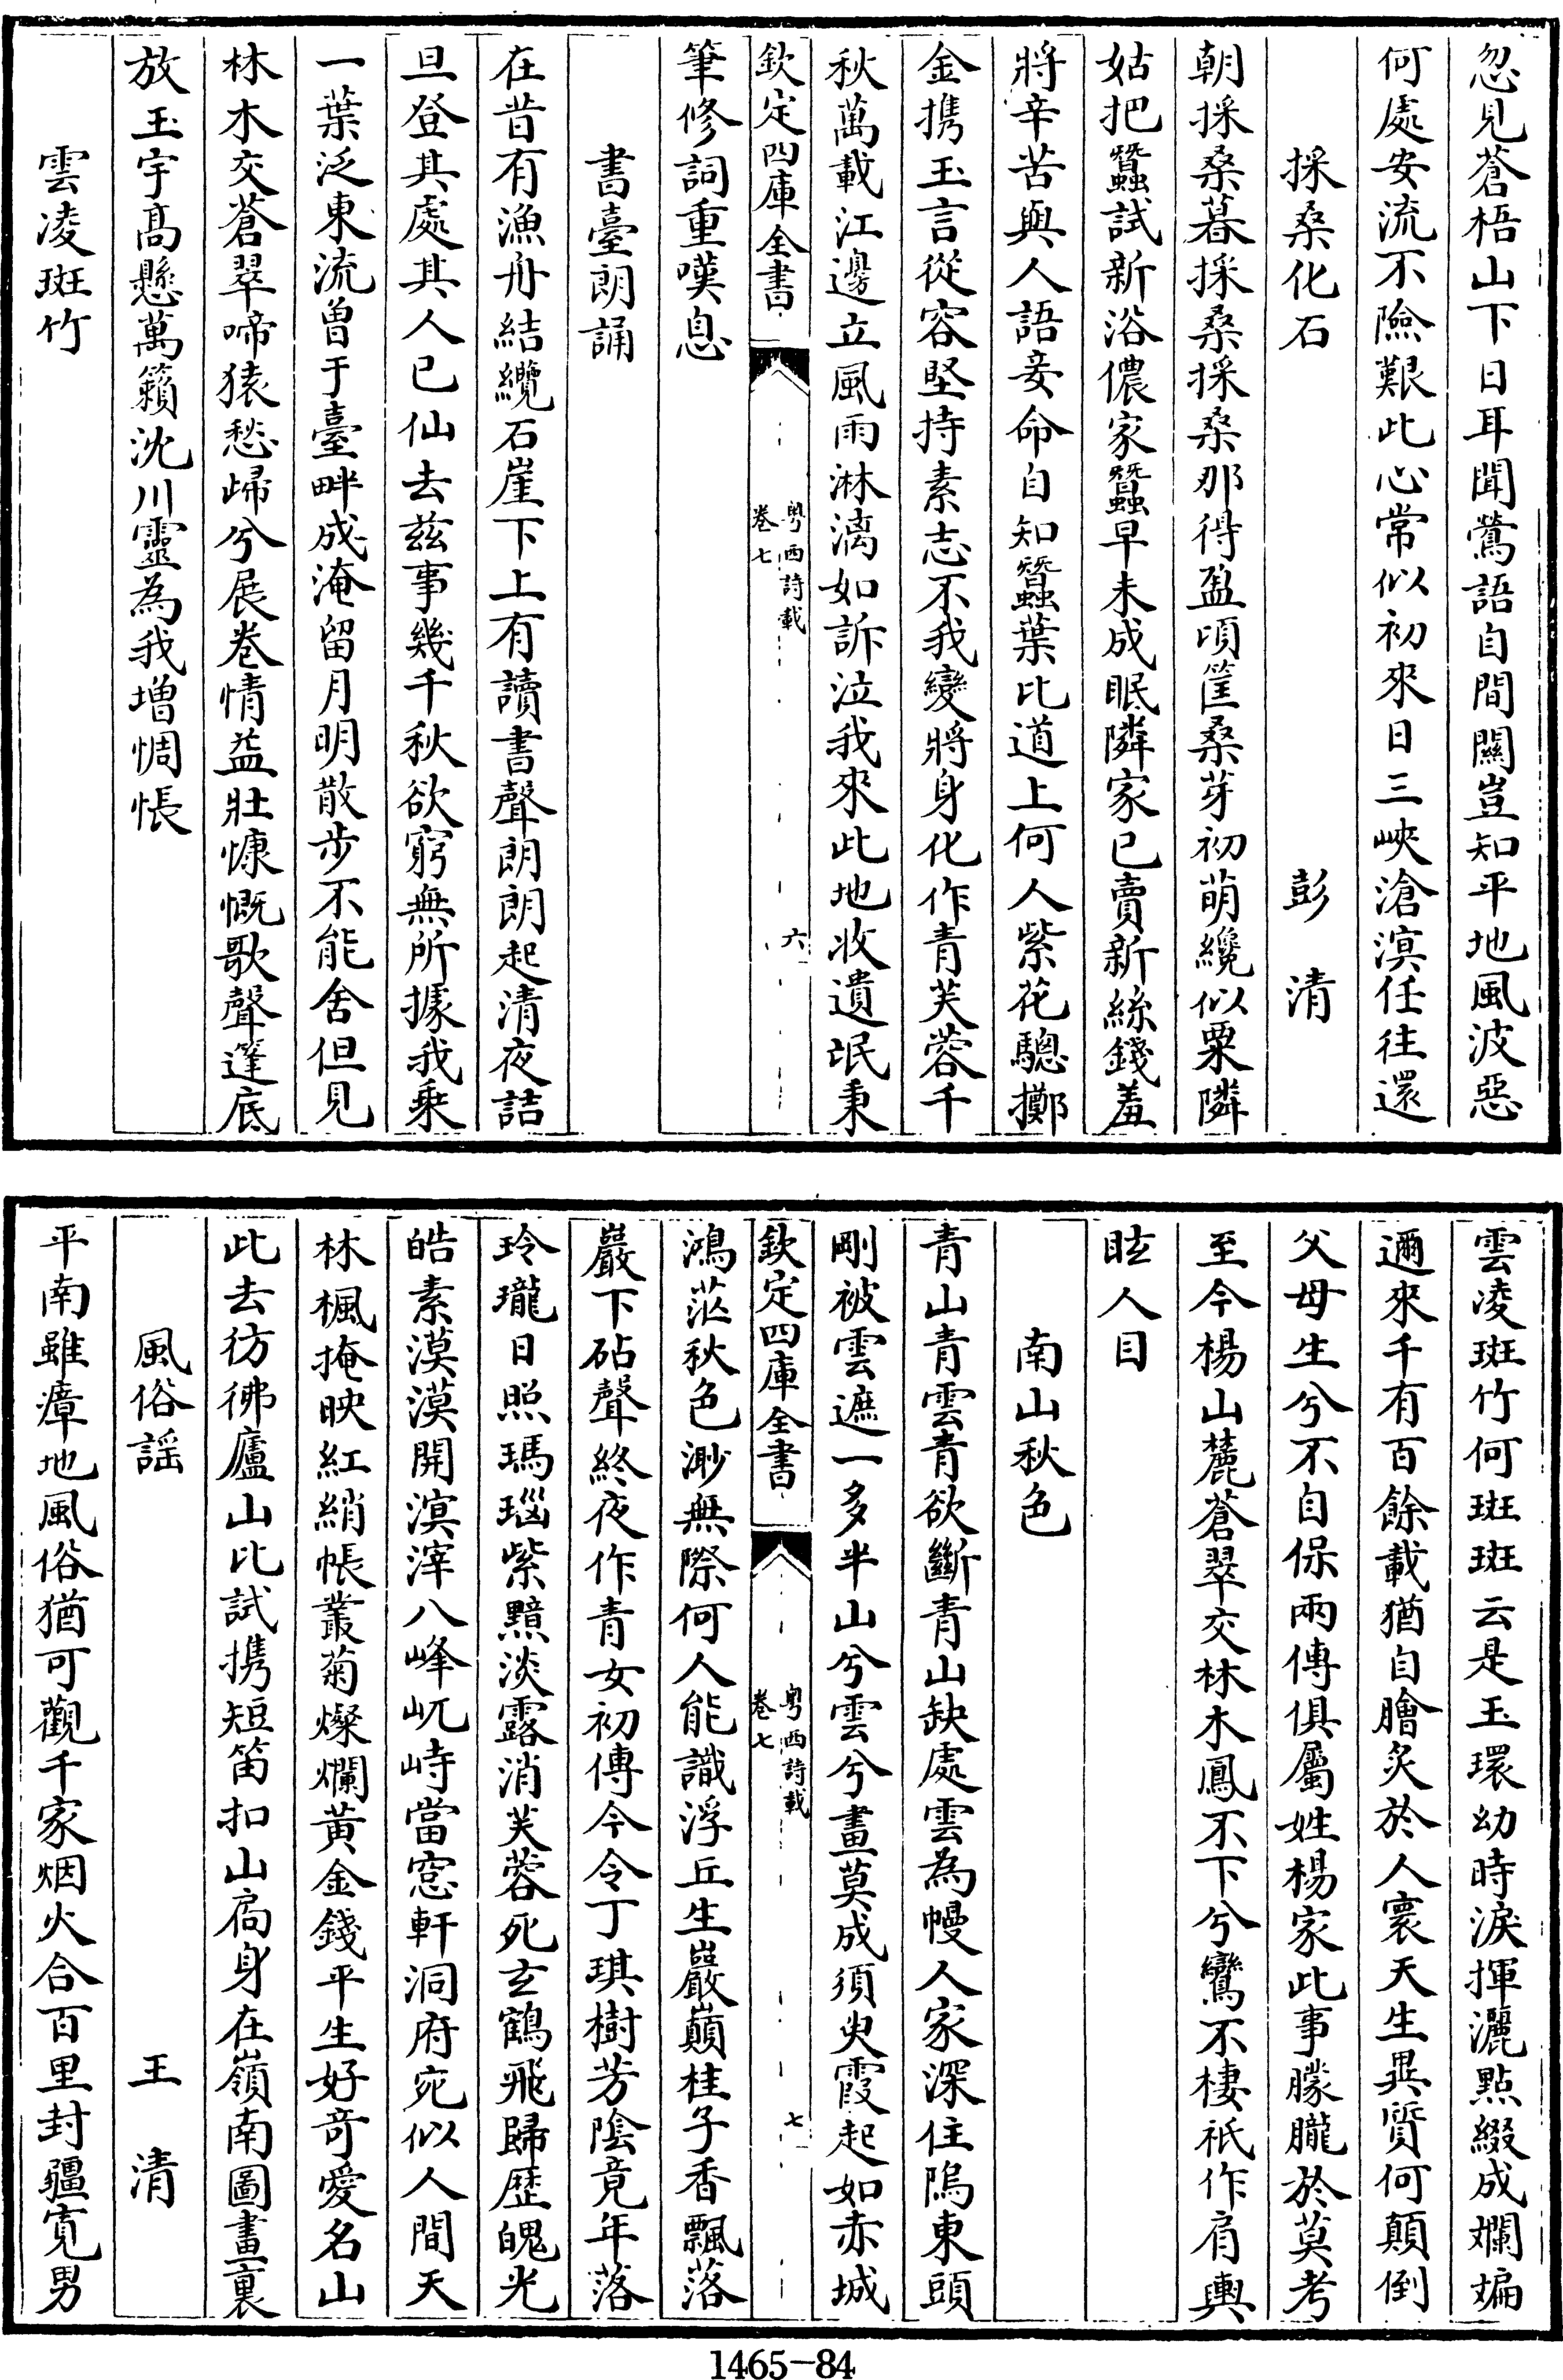 忽見蒼梧山下日耳聞鶯語自間關豈知平地風波惡
何處安流不險艱此心常似初來日三峽滄溟任往還
採桑化石　彭清
朝採桑暮採桑採桑那得盈頃筐桑芽初萌纔似粟隣
姑把蠶試新浴儂家蠶早未成眠隣家已賣新絲錢羞
將辛苦與人語妾命自知蠶葉比道上何人紫花驄擲
金携玉言從容堅持素志不我變將身化作青芙蓉千
秋萬載江邊立風雨淋漓如訴泣我來此地收遺氓秉
欽定四庫全書　粤西詩載　卷七　六
筆修詞重嘆息
書臺朗誦
在昔有漁舟結纜石崖下上有讀書聲朗朗起清夜詰
旦登其處其人已仙去兹事幾千秋欲窮無所據我乗
一葉泛東流曽于臺畔成淹留月明散步不能舍但見
林木交蒼翠啼猿愁歸兮展巻情益壯慷慨歌聲篷底
放玉宇髙懸萬籟沈川靈為我增惆悵
雲凌斑竹
雲凌斑竹何斑斑云是玉環幼時淚揮灑點綴成斕斒
邇來千有百餘載猶自膾炙於人寰天生異質何顛倒
父母生兮不自保兩傳俱屬姓楊家此事朦朧於莫考
至今楊山麓蒼翠交林木鳳不下兮鸞不棲祇作肩輿
眩人目
南山秋色
青山青雲青欲斷青山缺處雲為幔人家深住隖東頭
剛被雲遮一多半山兮雲兮畫莫成須臾霞起如赤城
欽定四庫全書　粤西詩載　卷七　七
鴻茫秋色渺無際何人能識浮丘生巖巔桂子香飄落
巖下砧聲終夜作青女初傳今令丁琪樹芳陰竟年落
玲瓏日照瑪瑙紫黯淡露消芙蓉死玄鶴飛歸歴魄光
皓素漠漠開溟涬八峰屹峙當窓軒洞府宛似人間天
林楓掩映紅綃帳叢菊燦爛黄金錢平生好奇愛名山
此去彷彿廬山比試携短笛扣山扃身在嶺南圖畫裏
風俗謡　王清
平南雖瘴地風俗猶可觀千家烟火合百里封疆寛男
1465-84